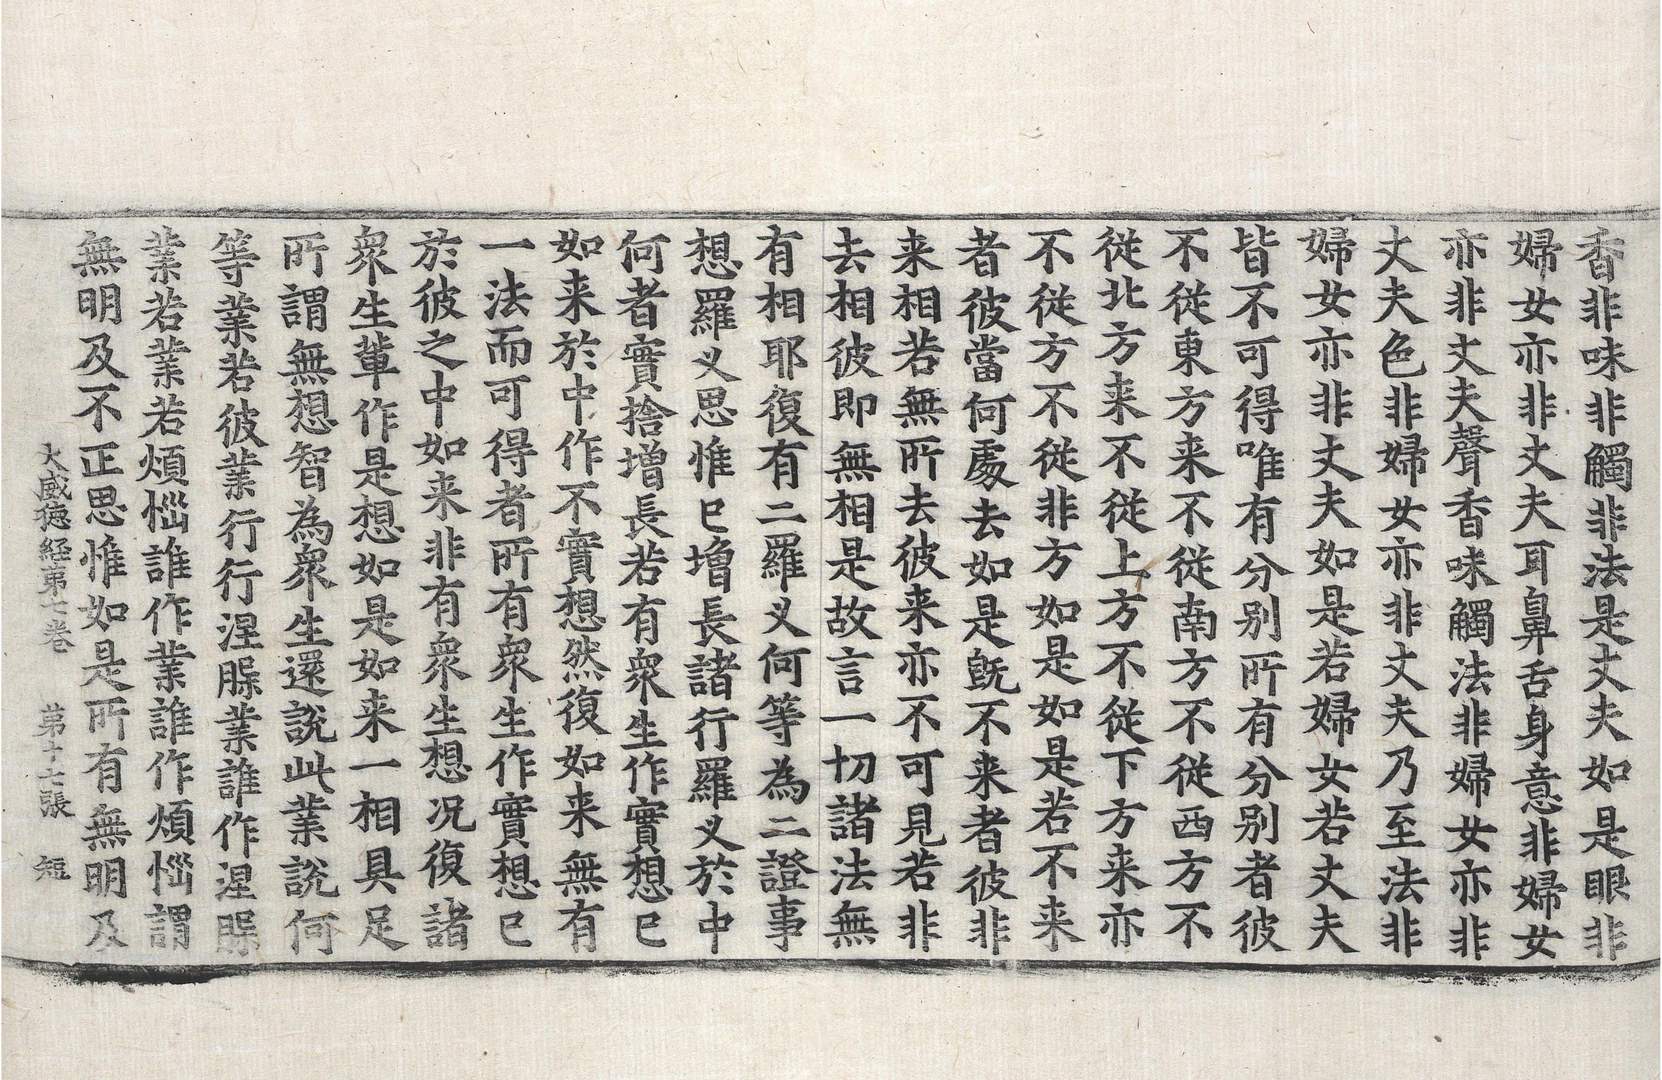 香非味非觸非法是丈夫如是眼非
婦女亦非丈夫耳鼻舌身意非婦女
亦非丈夫聲香味觸法非婦女亦非
丈夫色非婦女亦非丈夫乃至法非
婦女亦非丈夫如是若婦女若丈夫
皆不可得唯有分别所有分别者彼
不從東方来不從南方不從西方不
從北方来不從上方不從下方来亦
不從方不從非方如是如是若不来
者彼當何處去如是旣不来者彼非
来相若無所去彼来亦不可見若非
去相彼即無相是故言一切諸法無
有相耶復有二羅义何等為二證事
想羅义思惟已增長諸行羅义於中
何者實捨增長若有衆生作實想已
如来於中作不實想然復如来無有
一法而可得者所有衆生作實想已
於彼之中如来非有衆生想况復諸
衆生軰作是想如是如来一相具足
所謂無想智為衆生還說此業說何
等業若彼業行行涅槃業誰作涅槃
業若業若煩惱誰作業誰作煩惱謂
無明及不正思惟如是所有無明及
大威德経第七卷 第十七張 短